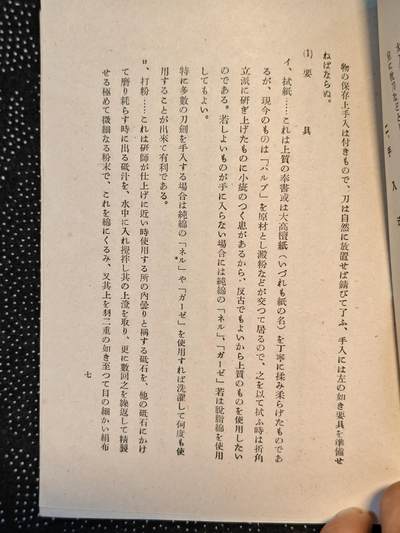 物の保存上手入は付きもので、刀は自然に放置せば錆びて了ふ、手入には左の如き要具を準備せ
ねばならぬ。
(1) 要具
イ、拭紙……これは上質の奉書或は大高檀紙(いづれも紙の名)を丁寧に揉み柔らげたものであ
るが、現今のものは「パルプ」を原材とし澱粉などが交つて居るので、之を以て拭ふ時は折角
立派に研ぎ上げたものに小疵のつく患があるから、反古でもよいから上質のものを使用したい
のである。若しよいものが手に入らない場合には純綿の「ネル」、「ガーゼ」若は脱脂綿を使用
してもよい。
特に多数の刀剣を手入する場合は純綿の「ネル」や「ガーゼ」を使用すれば洗濯して何度も使
用することが出来て有利である。
ロ、打粉……これは研師が仕上げに近い時使用する所の内曇りと稱する砥石を、他の砥石にかけ
て磨り純らす時に出る砥汁を、水中に入れ攪拌し其の上澄を取り、更に数回之を繰返して精製
せる極めて微細なる粉末で、これを綿にくるみ、又其上を羽二重の如き至つて目の細かい絹布
七